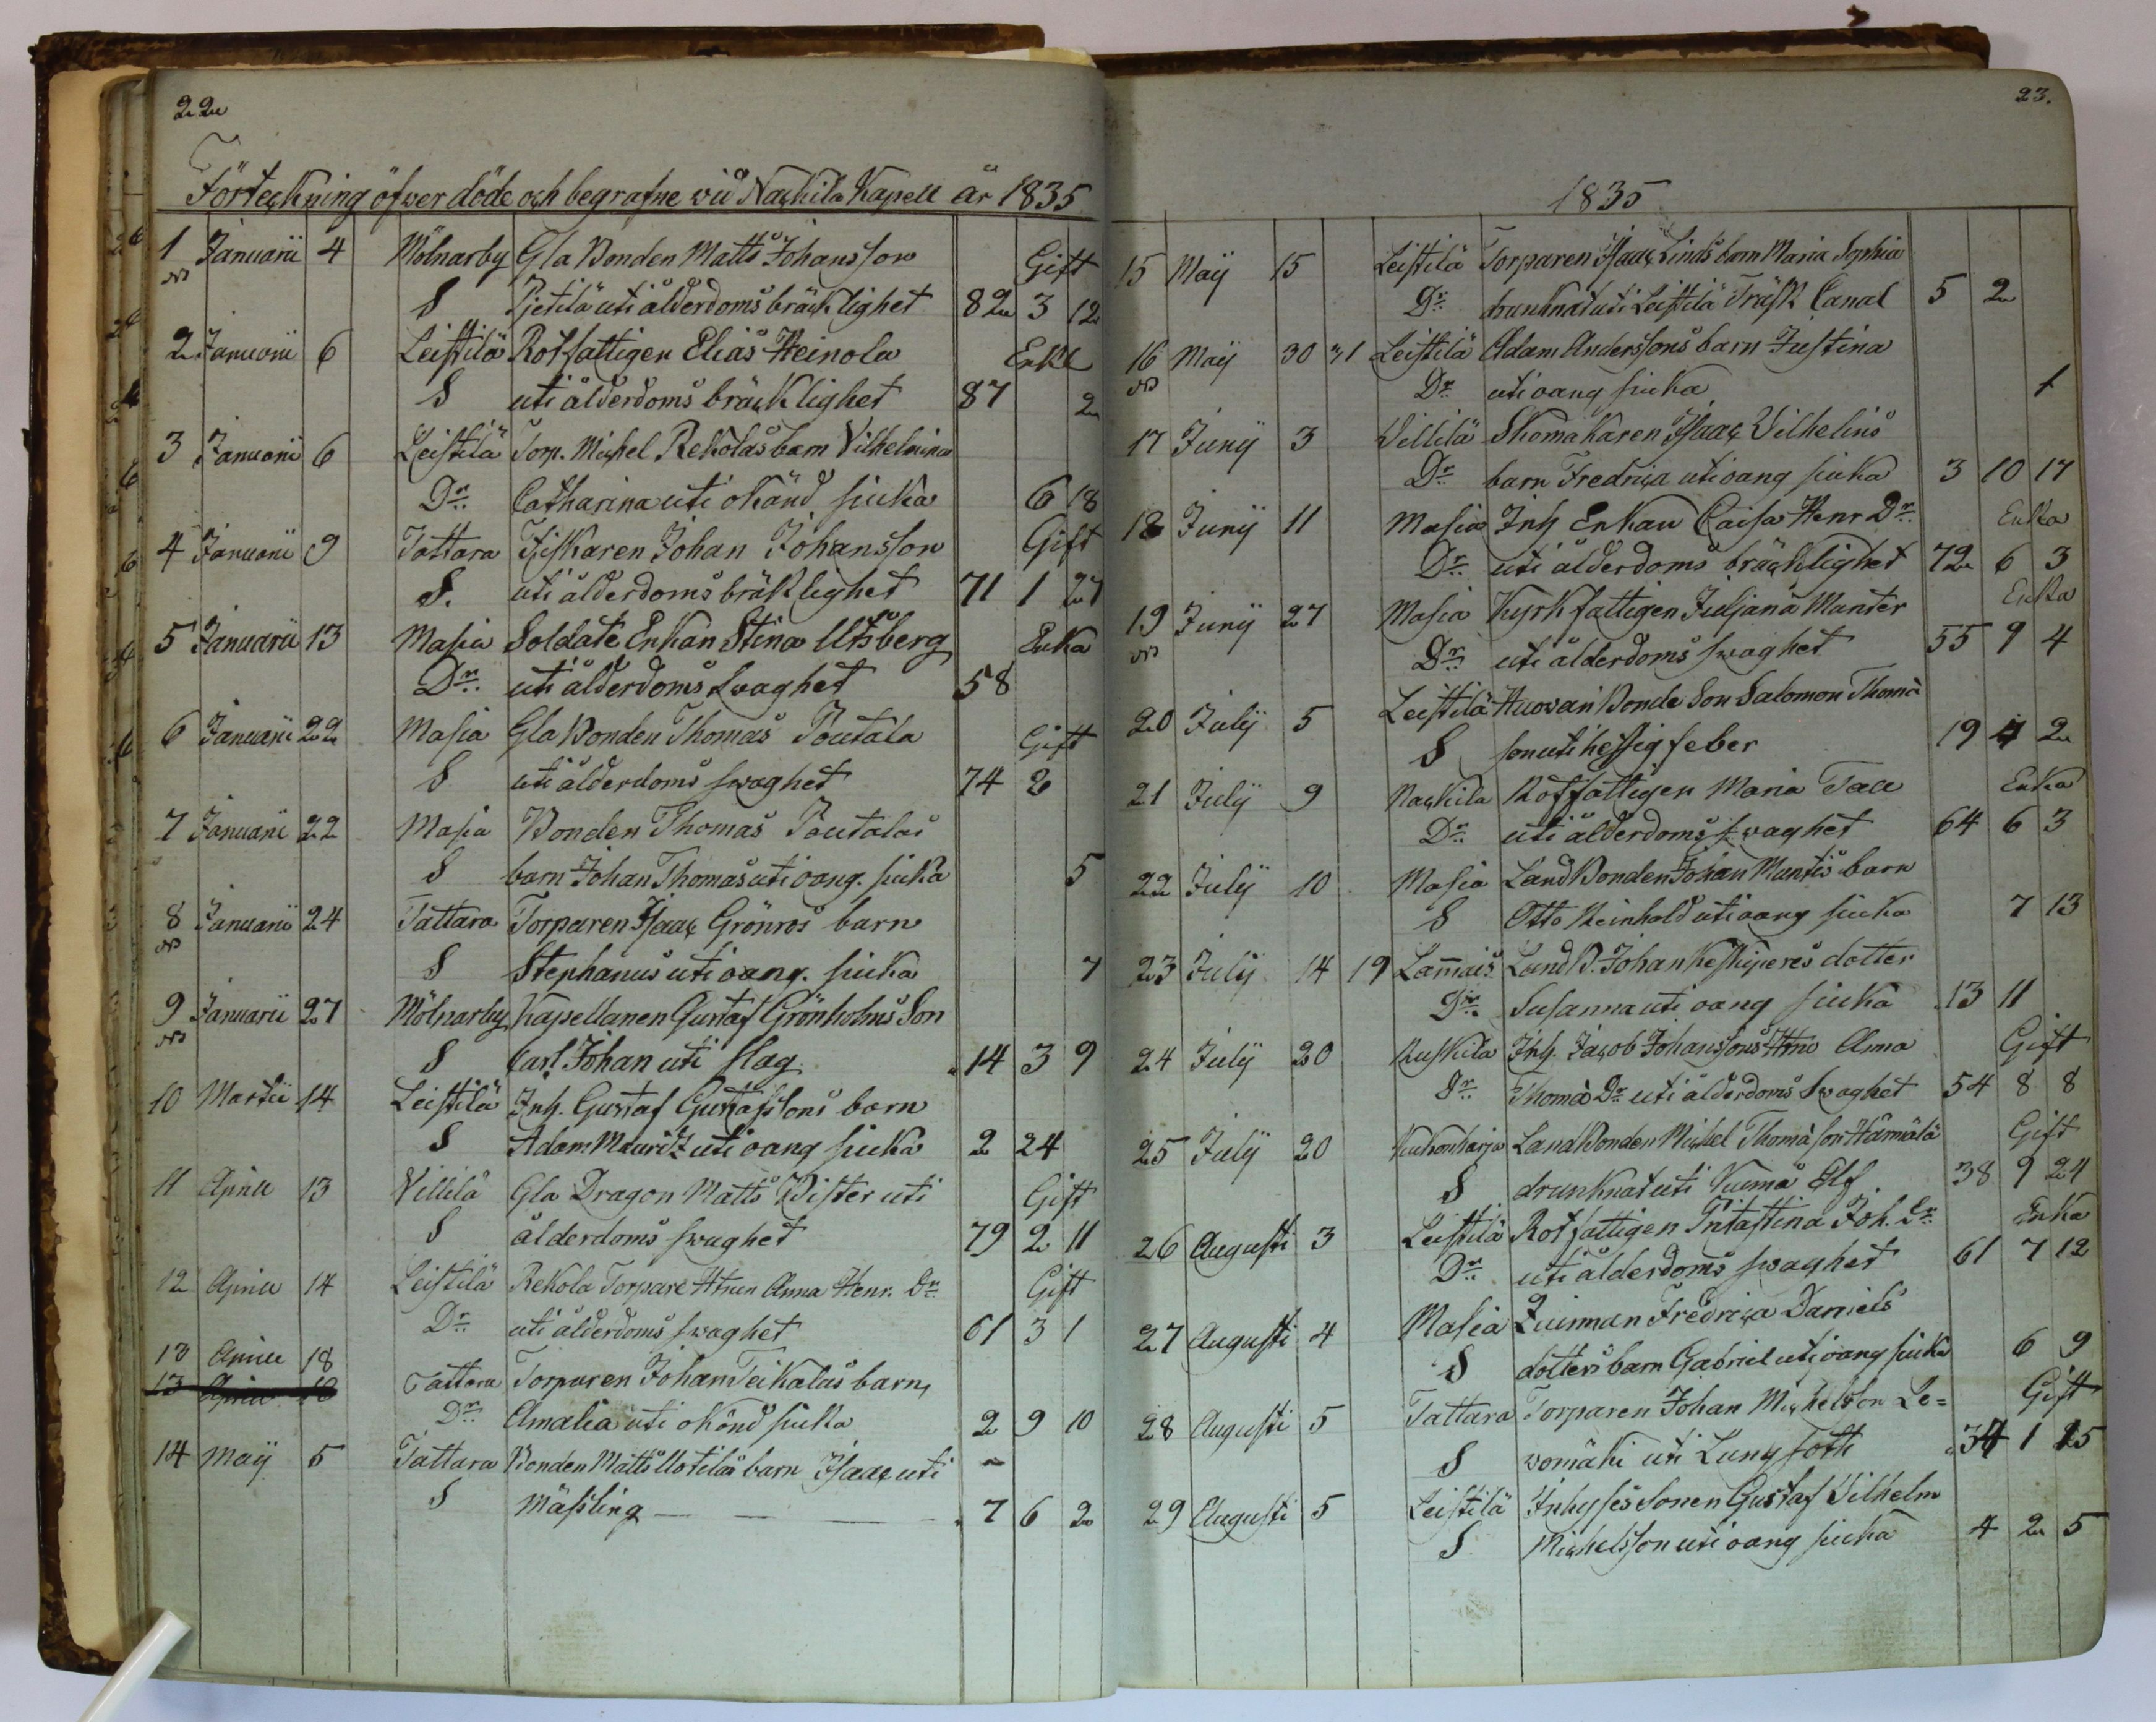 22
Förteckning öfwer döde och begrafne wid Nackila Kapell år 1835
1 Januarii 4 Mölnarby Gla Bonden Matts Johansson Gift
S Pjetilä uti ålderdoms bräcklighet 82 3 12
2 Januarii 6 Leistilä Rotfattigen Elias Heinola Enkl
S uti ålderdoms bräcklighet 87 2
3 Januarii 6 Leistilä Torp. Michel Rekolas barn Vilhelmina
Dr. Catharina uti okänd siuka 6 18
4 Januarii 9 Tattara Fiskaren Johan Johansson Gift
S. uti ålderdoms bräklighet 71 1 27
5 Januarii 13 Masia Soldate Enkan Stina Utsberg Enka
Dr. uti ålderdoms swaghet 58
6 Januarii 22 Masia Gla Bonden Thomas Poutala Gift
S uti ålderdoms swaghet 74 2
7 Januarii 22 Masia Bonden Thomas Poutalas
S barn Johan Thomas uti oang. siuka 5
8 Januarii 24 Tattara Torparen Isaac Grönros barn
S Stephanus uti oang. siuka 7
9 Januarii 27 Mölnarby Kapellanen Gustaf Grönholms Son
S Carl Johan uti slag 14 3 9
10 Martii 14 Leistilä Inh. Gustaf Gustafssons barn
S Adam Mauritz uti oang siuka 2 24
11 Aprill 13 Villilä Gla Dragon Matts Wister uti Gift
S ålderdoms swaghet 79 2 11
12 Aprill 14 Leistilä Rekola Torpare Htrun Anna Henr. Dr. Gift
Dr. uti ålderdoms swaghet 61 3 1
13 Aprill 18
13 Aprill 18 Tattara Torparen Johan Teikalas barn
Dr. Amalia uti okänd siuka 2 9 10
14 Maij 5 Tattara Bonden Matts Uotilas barn Isaac uti
S Mässling 7 6 2
23.
1835
15 Maij 15 Leistilä Torparen Isaac Linds barn Maria Sophia
Dr. drunknat uti Leistilä Träsk Canal 5 2
16 Maij 30 31 Leistilä Adam Anderssons barn Justina
Dr. uti oang siuka 1
17 Junij 3 Villilä Skomakaren Isaac Vilhelins
Dr. barn Fredrica uti oang siuka 3 10 17
18 Junij 11 Masia Inh Enkan Caisa Henr Dr. Enka
Dr. uti ålderdoms bräcklighet 72 6 3
19 Junij 27 Masia Kyrkfattigen Juljana Munter Enka
Dr. uti ålderdoms swaghet 55 9 4
20 Julij 5 Leistilä Huowari Bonde Son Salomon Thomæ
S son uti hessig feber 19 4 2
21 Julij 9 Nackila Rotfattigen Maria Tall Enka
Dr. uti ålderdoms swaghet 64 6 3
22 Julij 10 Masia Land Bonden Johan Muntis barn
S Otto Reinhold uti oang siuka 7 13
23 Julij 14 19 Lammais Land B. Johan Keskiperes dotter
Dr. Susanna uti oang siuka 13 11
24 Julij 20 Ruskila Inh. Jacob Johanssons Htru Anna Gift
Dr. Thomæ Dr uti ålderdoms Swaghet 54 8 8
25 Julij 20 Kukonharja Land Bonden Michel Thomæ son Härmälä Gift
S drunknat uti Kumå Elf 38 9 24
26 Augusti 3 Leistilä Rotfattigen Joh. Dr. Enka
Dr. uti ålderdoms swaghet 61 7 12
27 Augusti 4 Masia Quinnan Fredrica Daniels
S dotters barn Gabriel uti oang siuka 6 9
28 Augusti 5 Tattara Torparen Johan Michelson Le= Gift
S womäki uti Lungsott 34 1 15
29 Augusti 5 Leistilä Inhyses Sonen Gustaf Vilhelm
S Michelsson uti oang siuka 4 2 5